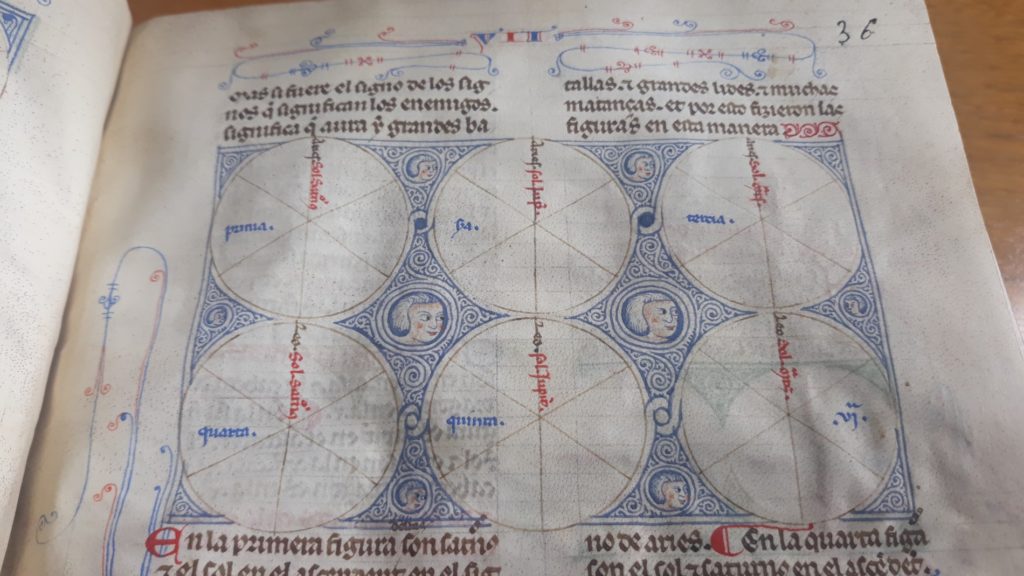 VII
36
uas si fuere el signo de los sig
nos q̄ significan los enemigos.
significa q̄ aura y̆ grandes ba
tallas. ⁊ grandes lides. ⁊ muchas
matanças. et por esto fizieron las
figuras en esta manera
aries. Sol. satño
prima.
aries. sol. Jupit̃.
ſ̃a.
aries. Sol.
tercia.
aries. Sol. satñ̃o
quarta.
aries. sol. Jupit̃.
quinta.
aries. Sol.
.vj.ª
En la primera figura son satño
⁊ el sol en el ascendent en el sig
no de aries. En la quarta figã
son el sol ⁊ saturno en el asçẽdẽt.